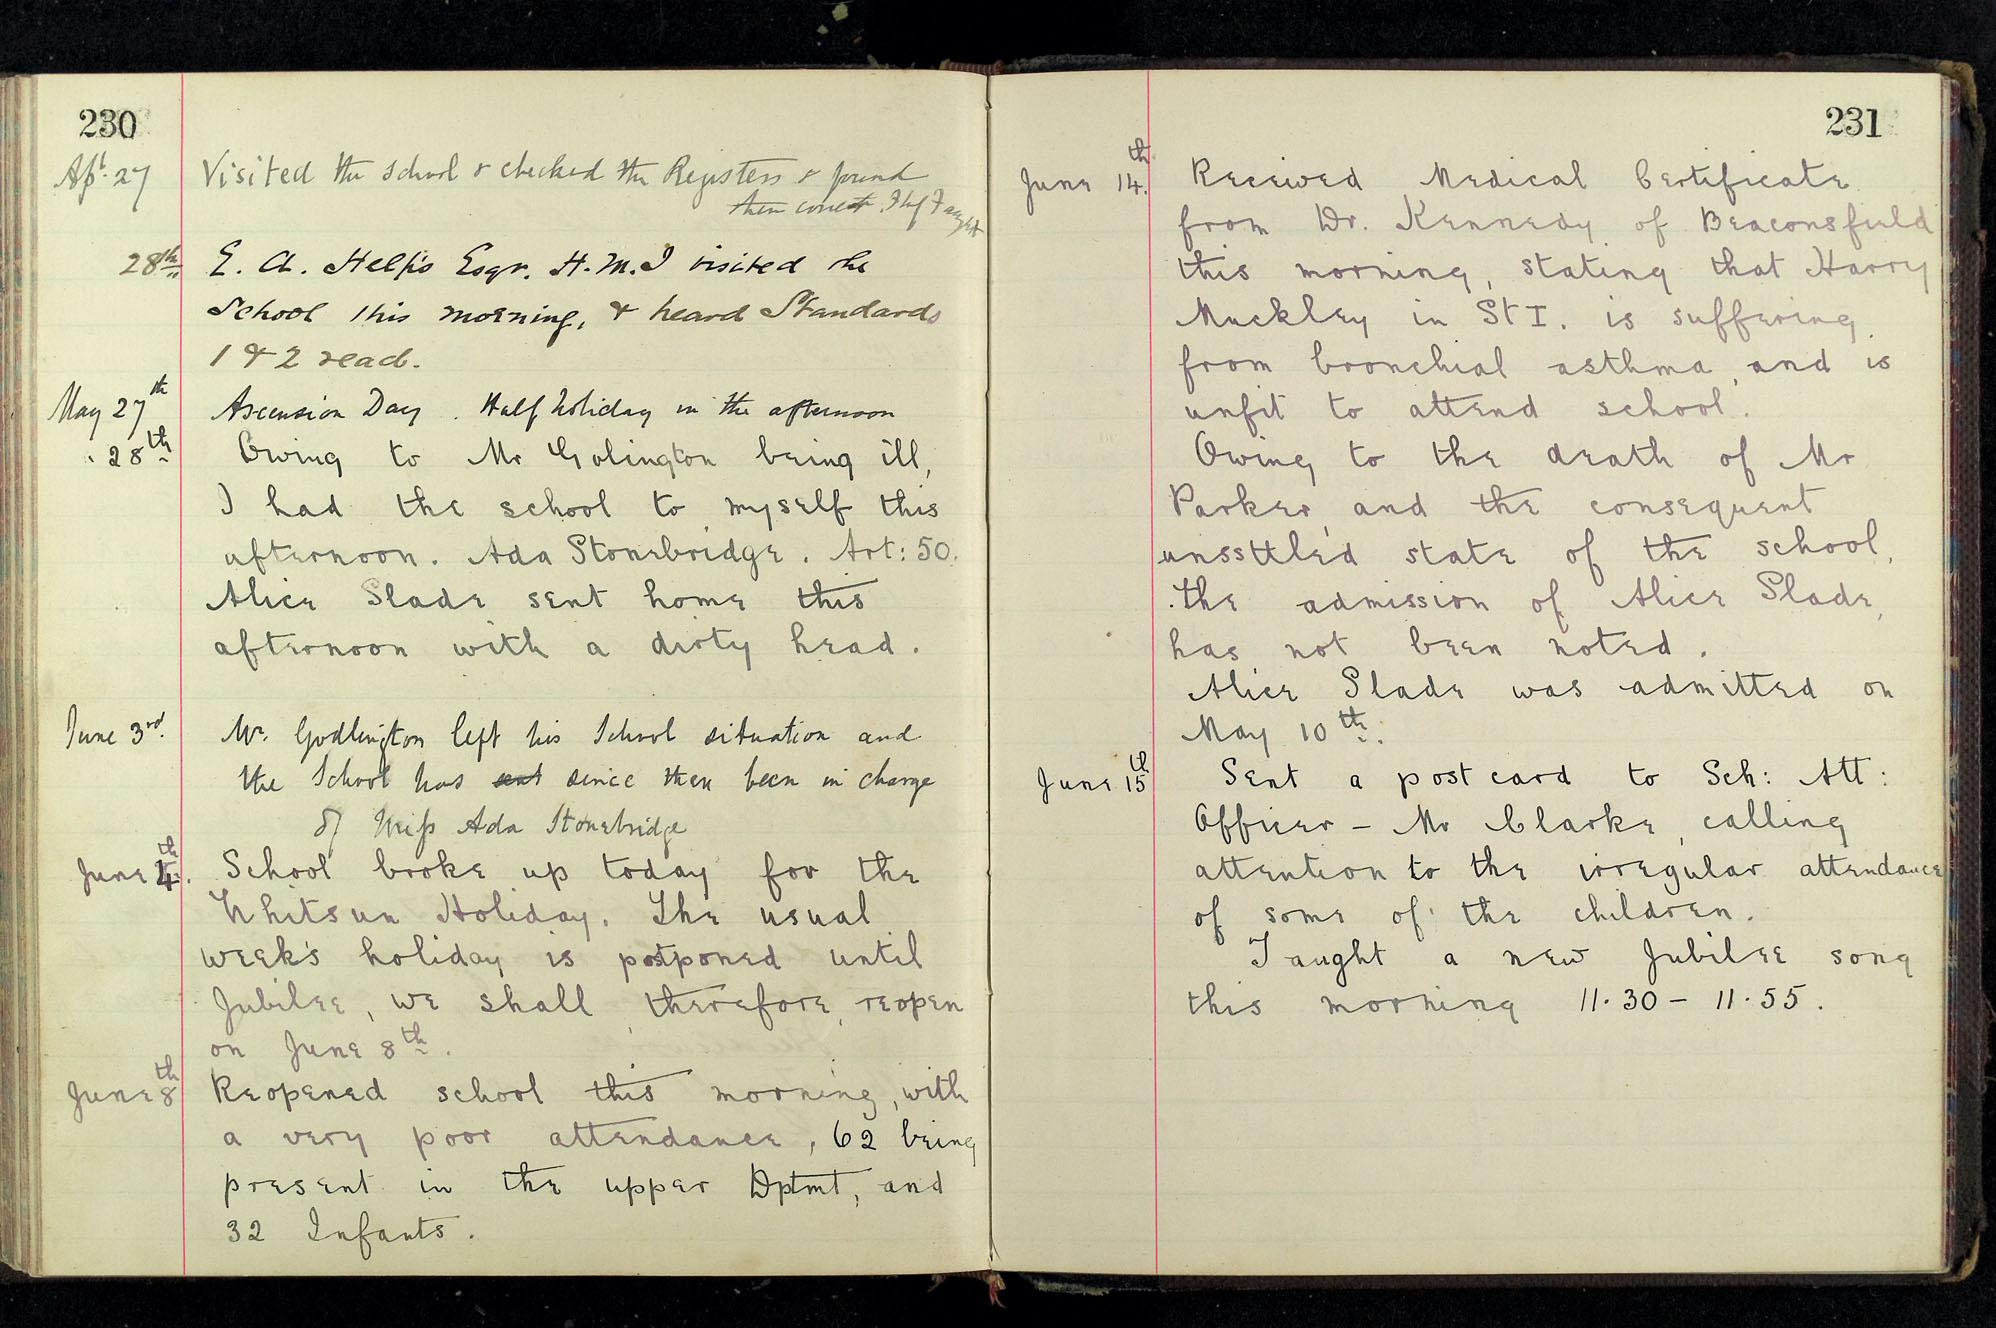 230
Apl. 27 Visited the School & checked the Registers & found
them correct.
28th E. A. Helps Esqr. H.M.I visited the
School this morning, & heard Standards
1 & 2 read.
May 27th Ascension Day. Half holiday in the afternoon
" 28th Owing to Mr Golington being ill,
I had the school to myself this
afternoon. Ada Stonebridge. Art: 50.
Alice Slade sent home this
afternoon with a dirty head.
June 3rd. Mr. Godlington left his School situation and
the School has since then been in charge
of Miss Ada Stonebridge
June 4th. School broke up today for the
Whitsun Holiday. The usual
week's holiday is postponed until
Jubilee, we shall, therefore, reopen
on June 8th.
June 8th Reopened school this morning, with
a very poor attendance, 62 being
present in the upper Dptmt, and
32 Infants.
231
June 14th. Received Medical Certificate
from Dr. Kennedy of Beaconsfield
this morning, stating that Harry
Muckley in St I. is suffering
from bronchial asthma, and is
unfit to attend school.
Owing to the death of Mr
Parker, and the consequent
unssttled state of the school,
the admission of Alice Slade,
has not been noted.
Alice Slade was admitted on
May 10th.
June 15th Sent a postcard to Sch: Att:
Officer – Mr Clarke, calling
attention to the irregular attendance
of some of the children.
Taught a new Jubilee song
this morning 11.30 – 11.55.